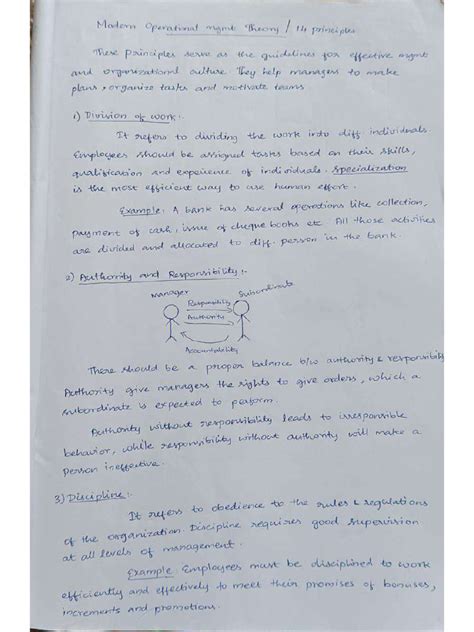 Modern Operational mgmt Theory / 14 principles
These principles serve as the guidelines for effective mgmt
and organizational culture. They help managers to make
plans, organize tasks and motivate teams
1) Division of work:-
It refers to dividing the work into diff individuals.
Employees should be assigned tasks based on their skills,
qualification and experience of individuals. Specialization
is the most efficient way to use human effort.
Example: A bank has several operations like collection,
payment of cash, issue of cheque books etc. All those activities
are divided and allocated to diff. person in the bank.
2) Authority and Responsibility:-
Manager
Subordinate
Responsibility
Authority
Accountability
There should be a proper balance b/w authority & responsibility
Authority give managers the rights to give orders, which a
subordinate is expected to perform.
Authority without responsibility leads to irresponsible
behavior, while responsibility without authority will make a
person ineffective.
3) Discipline:-
It refers to obedience to the rules & regulations
of the organization. Discipline requires good supervision
at all levels of management.
Example: Employees must be disciplined to work
efficiently and effectively to meet their promises of bonuses,
increments and promotions.